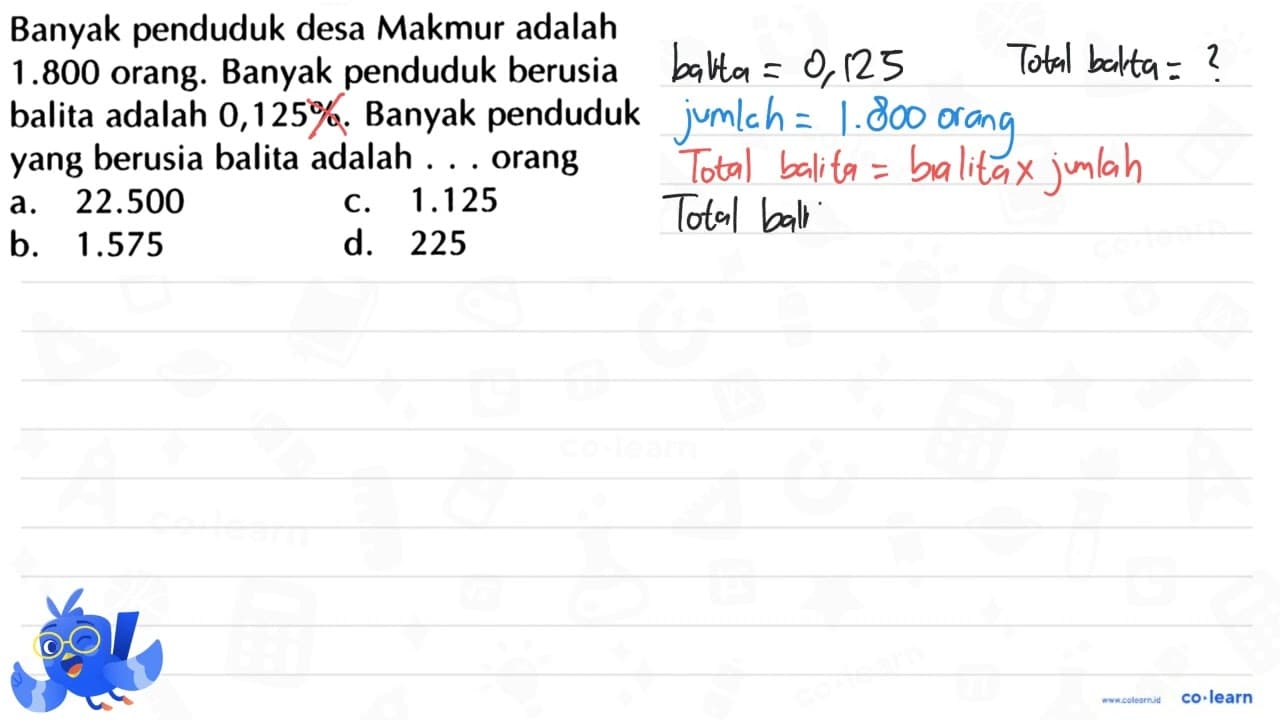 Banyak penduduk desa Makmur adalah
1.800 orang. Banyak penduduk berusia
balita adalah 0,125%. Banyak penduduk
yang berusia balita adalah . . . orang
a. 22.500 c. 1.125
b. 1.575 d. 225
balita = 0,125 Total balita = ?
jumlah = 1.800 orang
Total balita = balita x jumlah
Total bali
co·learn
co·learn
co·learn
co·learn
www.colearn.id co·learn